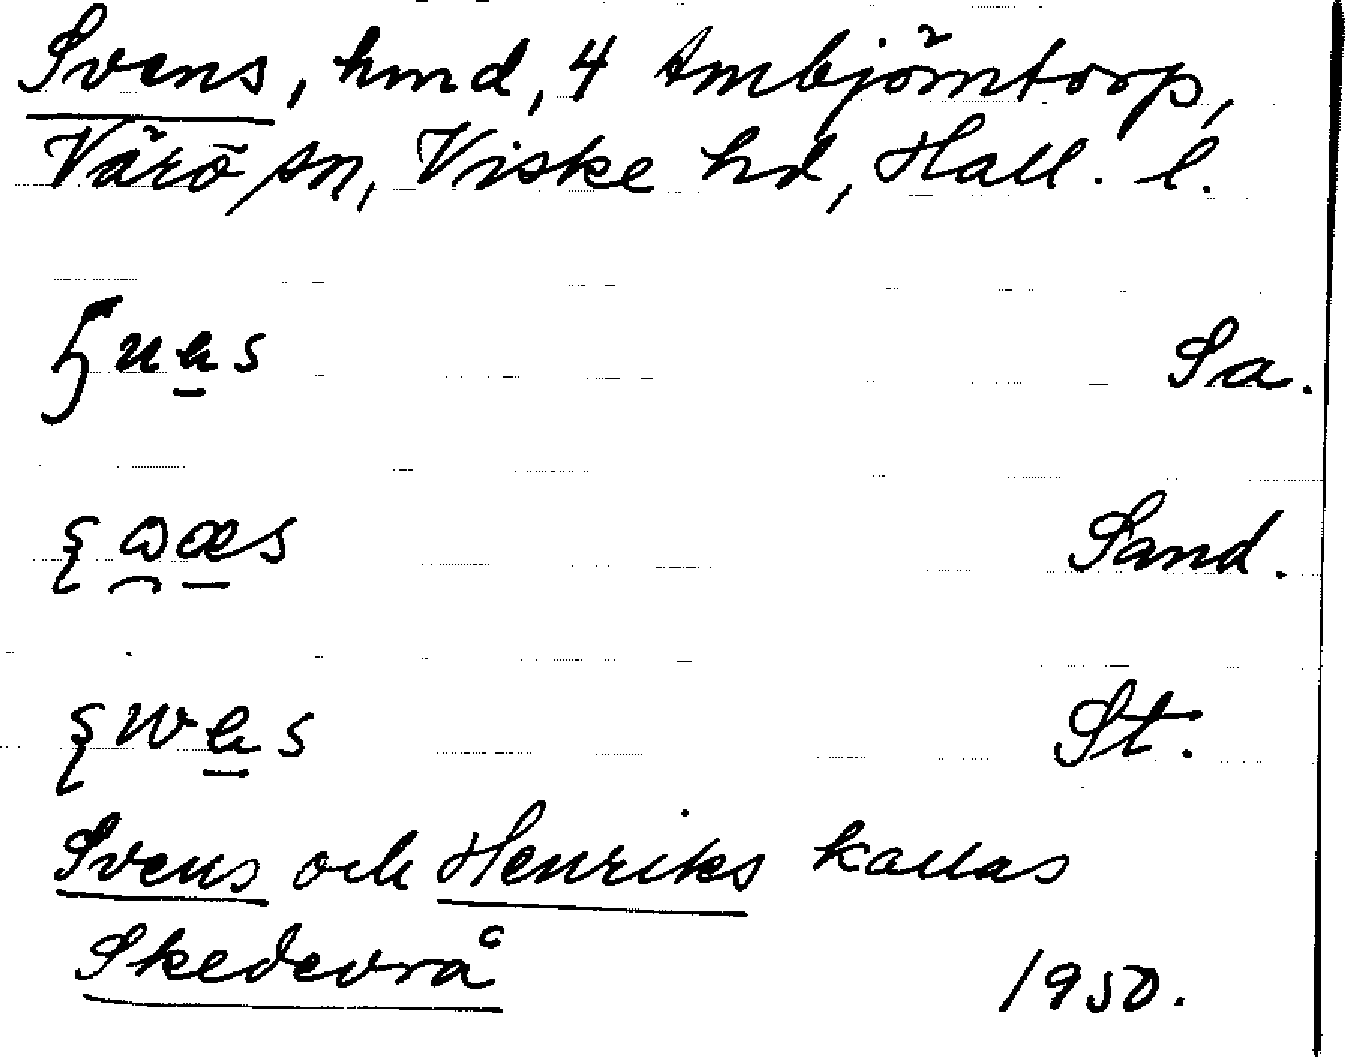 Svens, hmd, 4 Ambjörntorp,
Värö sn, Viske hd, Hall. l.
Sa.
Sand.
St.
Svens och Henriks kallas
Skedevrå
1950.